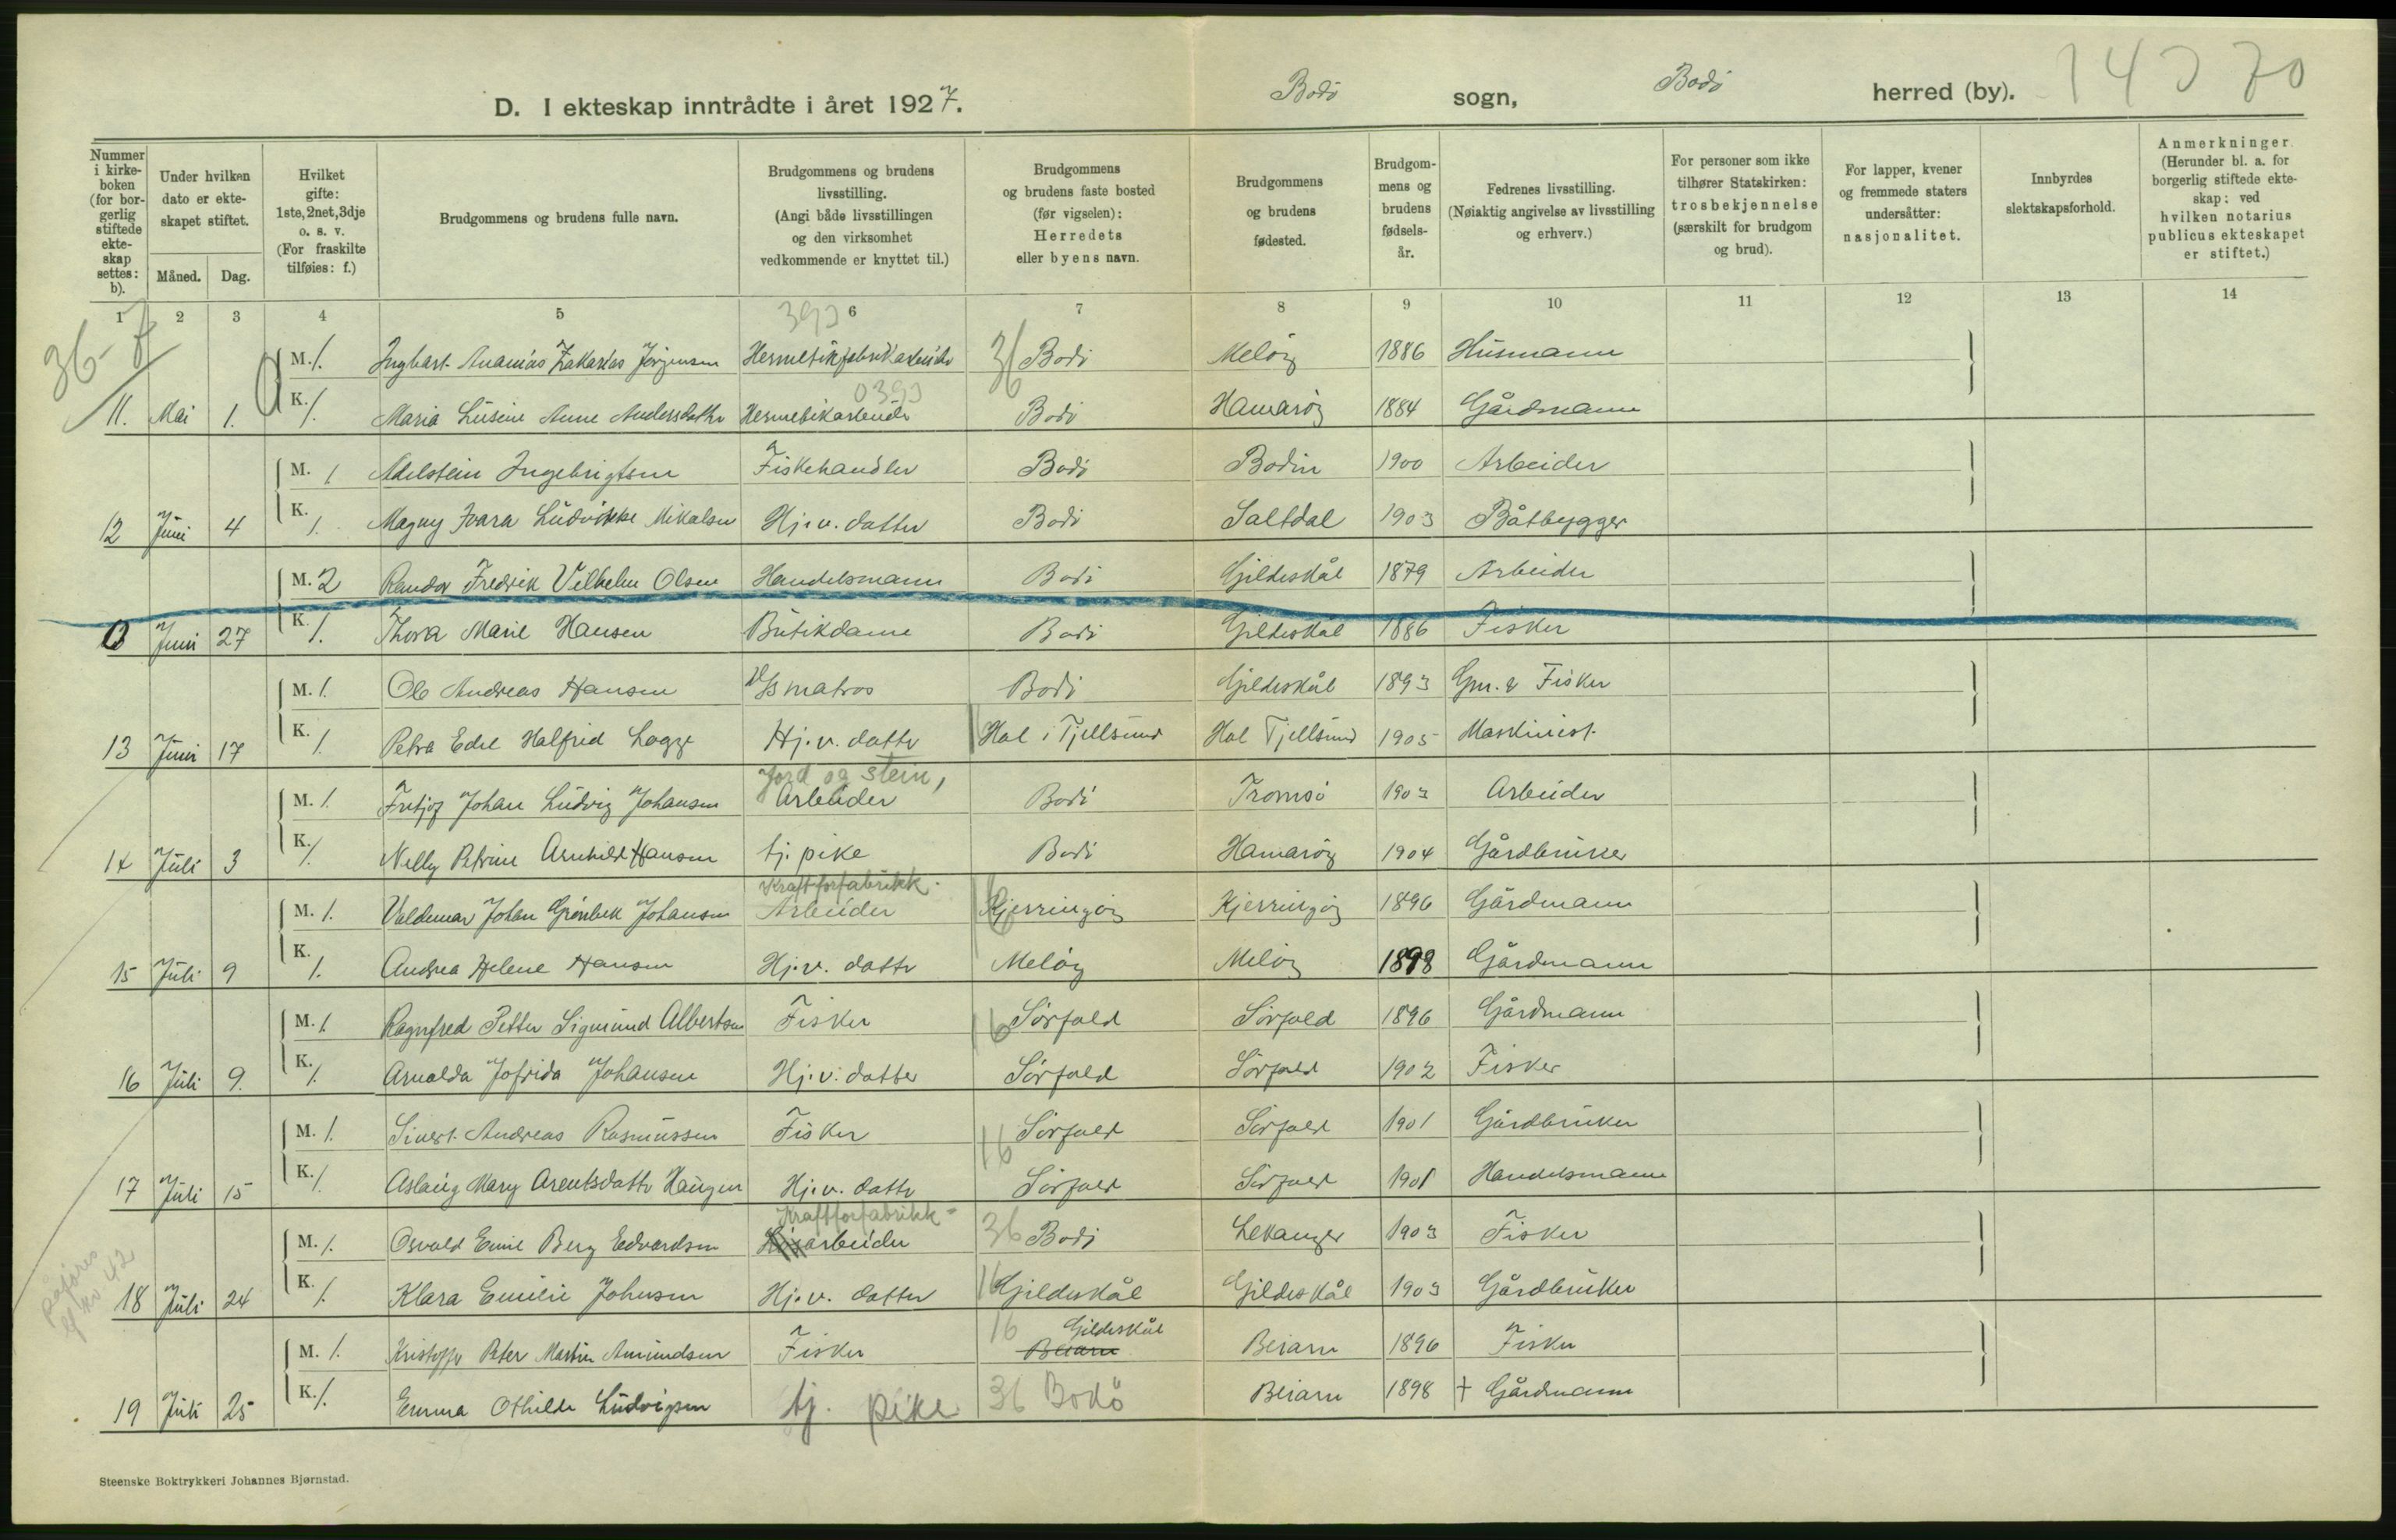 D. I ekteskap inntrådte i året 1927.
Bodö sogn, Bodö herred (by). 70
Nummer i kirkeboken (for borgerlig stiftede ekteskap settes: b).
Under hvilken dato er ekteskapet stiftet.
Måned. Dag.
Hvilket gifte: 1ste, 2net, 3dje o. s. v. (For fraskilte tilføies: f.)
Brudgommens og brudens fulle navn.
Brudgommens og brudens livsstilling. (Angi både livsstillingen og den virksomhet vedkommende er knyttet til.)
Brudgommens og brudens faste bosted (før vigselen): Herredets eller byens navn.
Brudgommens og brudens fødested.
Brudgommens og brudens fødselsår.
Fedrenes livsstilling. (Nøiaktig angivelse av livsstilling og erhverv.)
For personer som ikke tilhører Statskirken: trosbekjennelse (særskilt for brudgom og brud).
For lapper, kvener og fremmede staters undersåtter: nasjonalitet.
Innbyrdes slektskapsforhold.
Anmerkninger. (Herunder bl. a. for borgerlig stiftede ekteskap: ved hvilken notarius publicus ekteskapet er stiftet.)
1 2 3 4 5 6 7 8 9 10 11 12 13 14
36-7
M. 1. Ingbart Ananias Zakarias Jörgensen Hermetikfabrikarbeider 36 Bodö Melöy 1886 Husmann
11. Mai 1. K. 1. Maria Lusine Anne Andersdatter Hermetikarbeider Bodö Hamaröy 1884 Gårdmann
M. 1 Adelstein Ingebrigtsen Fiskehandler Bodö Bodin 1900 Arbeider
12 Juni 4 K. 1. Magny Ivara Ludvikke Mikalsen Hj.v. datter Bodö Saltdal 1903 Båtbygger
M. 2 Randor Fredrik Vilhelm Olsen Handelsmann Bodö Gildeskål 1879 Arbeider
Juni 27 K. 1. Thora Marie Hansen Butikdame Bodö Gildeskål 1886 Fisker
M. 1. Ole Andreas Hansen D/s matros Bodö Gildeskål 1893 Gm. & Fisker
13 Juni 17 K. 1. Petra Edel Halfrid Logge Hj.v. datter Hol i Tjellsund Hol Tjellsund 1905 Maskinist.
Jord og stein,
M. 1. Fritjof Johan Ludvig Johansen Arbeider Bodö Tromsö 1903 Arbeider
14 Juli 3 K. 1. Nelly Petrine Arnhild Hansen tj. pike Bodö Hamaröy 1904 Gårdbruker
Kraftforfabrikk.
M. 1. Valdemar Johan Grönbek Johansen Arbeider Kjerringöy Kjerringöy 1896 Gårdmann
15 Juli 9 K. 1. Andrea Helene Hansen Hj.v. datter Melöy Melöy 1898 Gårdmann
M. 1. Ragnfred Petter Sigmund Albertsen Fisker 16 Sörfold Sörfold 1896 Gårdmann
16 Juli 9. K. 1. Arnolda Jofrida Johansen Hj.v. datter Sörfold Sörfold 1902 Fisker
M. 1. Sivert Andreas Rasmussen Fisker 16 Sörfold Sörfold 1901 Gårdbruker
17 Juli 15 K. 1. Aslaug Mary Arentsdatter Haugen Hj.v. datter Sörfold Sörfold 1901 Handelsmann
Kraftforfabrikk-
M. 1. Osvald Emil Berg Edvardsen arbeider 36 Bodö Lekanger 1903 Fisker
18 Juli 24 K. 1. Klara Emilie Johnsen Hj.v. datter 16 Gildeskål Gildeskål 1903 Gårdbruker
16 Gildeskål
M. 1. Kristoffer Peter Martin Amundsen Fisker Beiarn Beiarn 1896 Fisker
19 Juli 25 K. 1. Emma Othilde Ludvigsen tj. pike 36 Bodö Beiarn 1898 + Gårdmann
Steenske Boktrykkeri Johannes Bjørnstad.